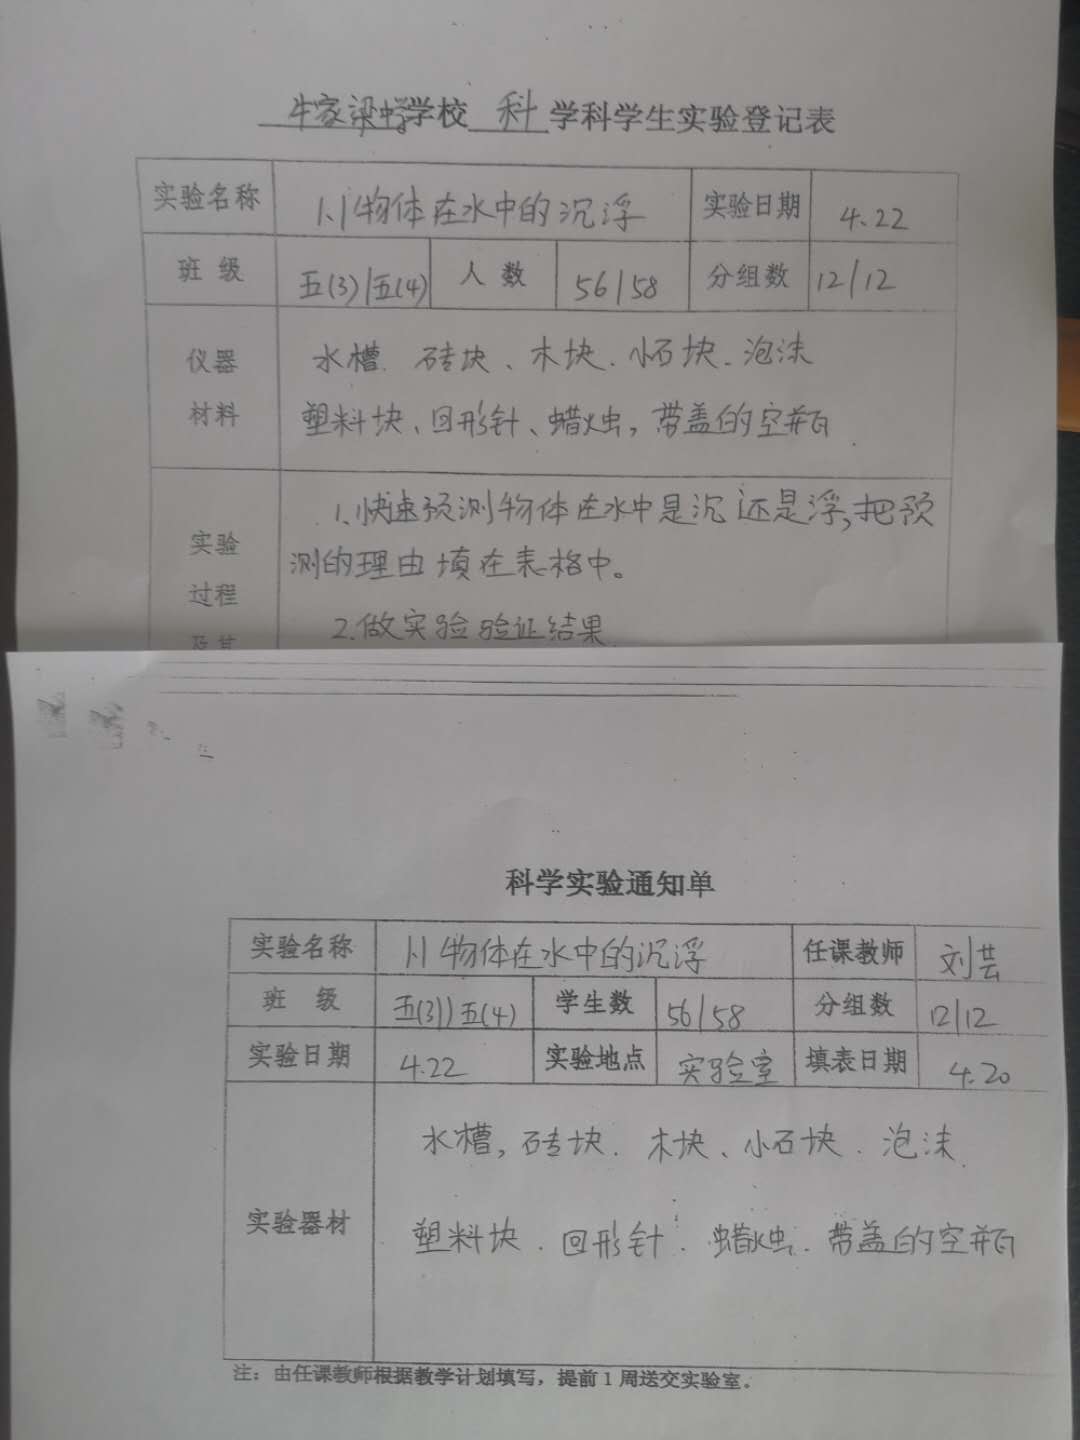 牛家梁中学学校 科 学科学生实验登记表
实验名称 1.1物体在水中的沉浮 实验日期 4.22
班 级 五(3)/五(4) 人 数 56/58 分组数 12/12
仪器 材料
水槽、砖块、木块、小石块、泡沫
塑料块、回形针、蜡烛,带盖的空瓶
实验 过程
1.快速预测物体在水中是沉还是浮,把预
测的理由填在表格中。
2.做实验验证结果
科学实验通知单
实验名称 1.1物体在水中的沉浮 任课教师 刘芸
班 级 五(3)/五(4) 学生数 56/58 分组数 12/12
实验日期 4.22 实验地点 实验室 填表日期 4.20
实验器材
水槽,砖块、木块、小石块、泡沫
塑料块、回形针、蜡烛、带盖的空瓶
注：由任课教师根据教学计划填写，提前1周送交实验室。